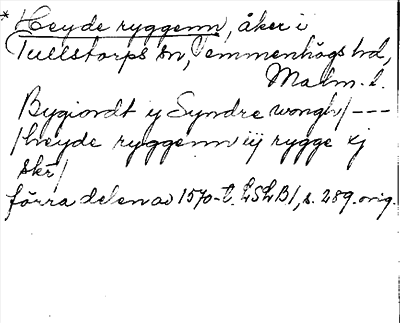 * Heyde ryggenn, åker i
Tullstorps sn, Vemmenhögs hd,
Malm. l.
Bygiordt y Syndre wongh / ---
/ heyde ryggenn iij rygge xj
skr /
förra delen av 1570-t. LSLB1, s. 289. orig.